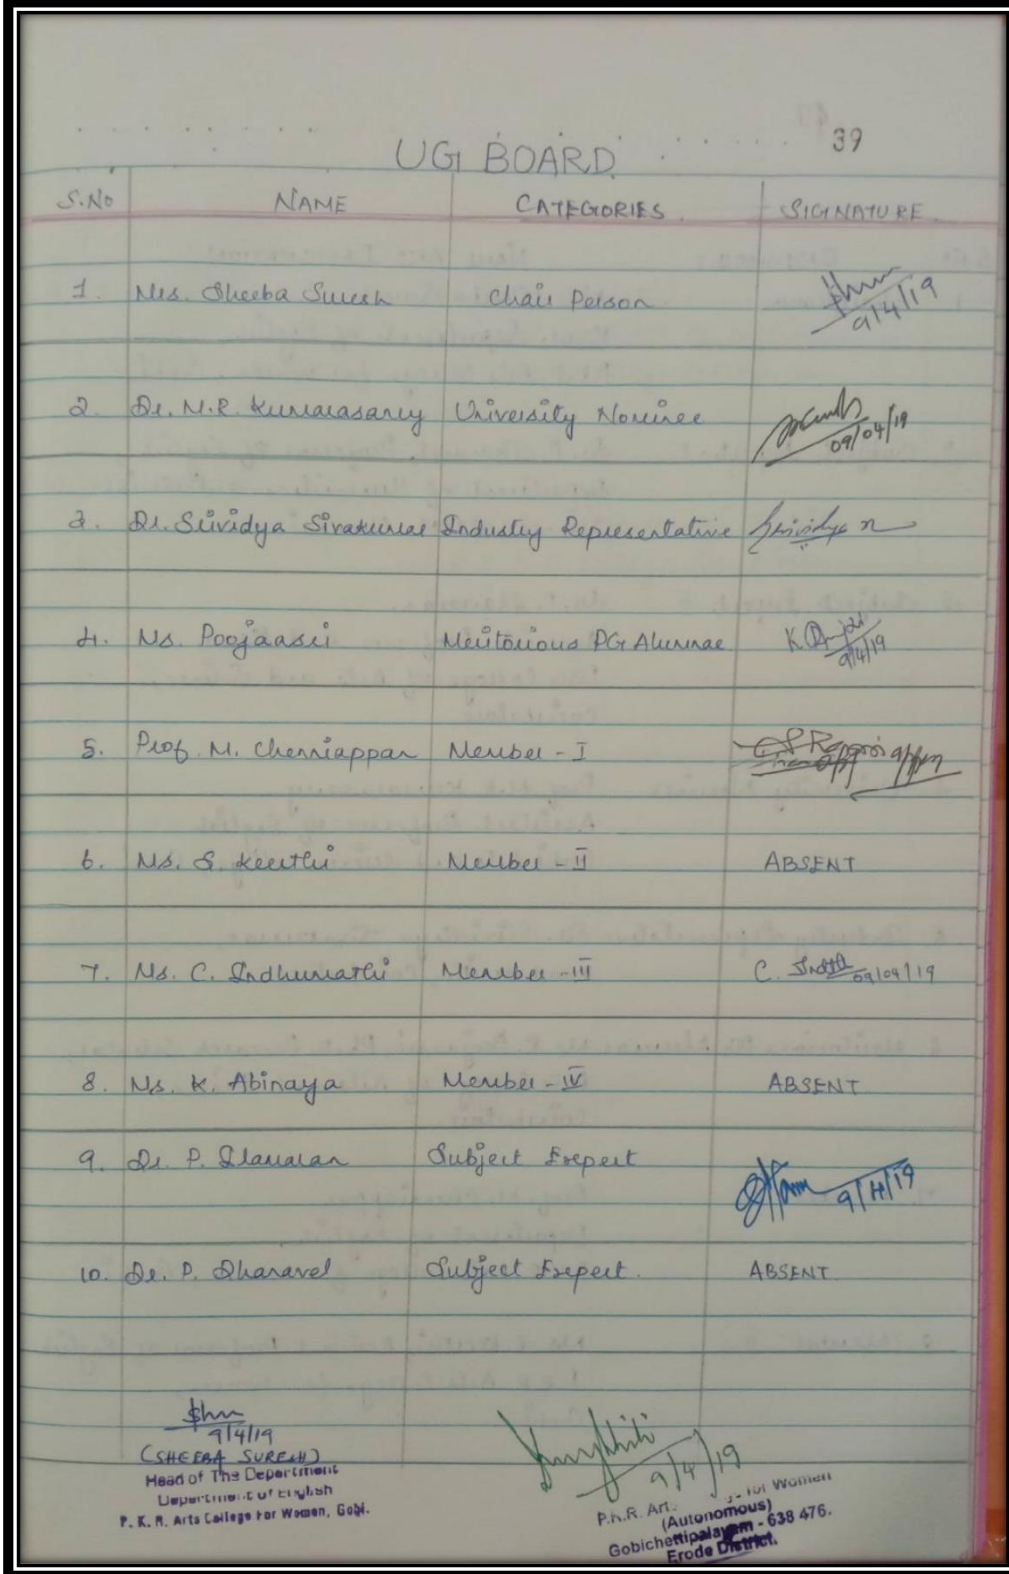 39
UG BOARD
S.No NAME CATEGORIES SIGNATURE
1. Mrs. Sheeba Suresh Chair Person 9/4/19
2. Dr. M.R. Kumarasamy University Nominee 09/04/19
3. Dr. Srividya Sivakumar Industry Representative Srividya
4. Ms. Poojaasri Meritorious PG Alumnae K 9/4/19
5. Prof. M. Chenniappan Member - I
6. Ms. S. Keerthi Member - II ABSENT
7. Ms. C. Indhumathi Member - III C. 09/04/19
8. Ms. K. Abinaya Member - IV ABSENT
9. Dr. P. Elanaran Subject Expert 9/4/19
10. Dr. P. Dhanavel Subject Expert. ABSENT
9/4/19
(SHEEBA SURESH)
Head of The Department
Department of English
P. K. R. Arts College For Women, Gobi.
9/4/19
P.K.R. Art for Women
(Autonomous)
Gobichettipalayam - 638 476.
Erode District.